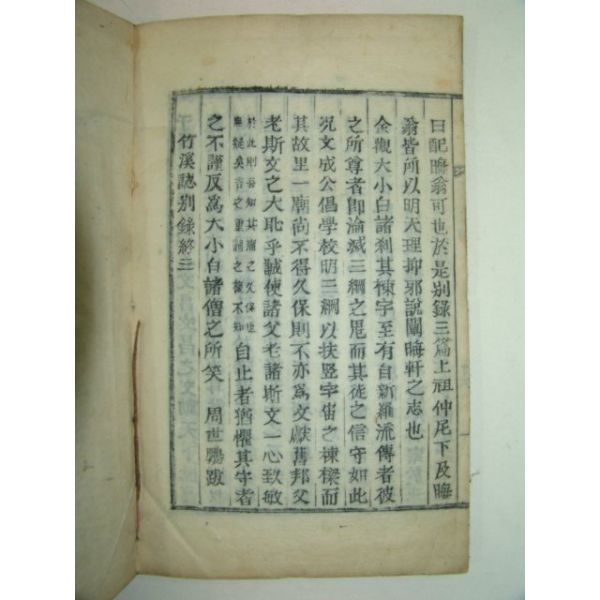 曰配晦翁可也於是別錄三篇上祖仲尼下及晦
翁皆所以明天理抑邪說闡晦軒之志也
今觀大小白諸刹其棟宇至有自新羅流傳者彼
之所尊者卽淪滅三綱之鬼而其徒之信守如此
況文成公倡學校明三綱以扶竪宇宙之棟樑而
其故里一廟尙不得久保則不亦爲文獻舊邦父
老斯文之大恥乎誠使諸父老諸斯文一心致敏
於此則吾知其廟之久保也
自止者猶懼其守者
之不謹反爲大小白諸僧之所笑 周世鵬跋
竹溪誌別錄終三